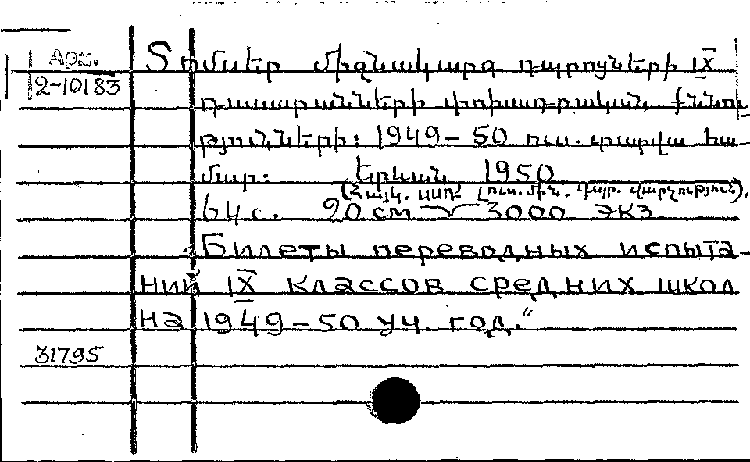 Арм.
2-10183
Տոմսեր միջնակարգ դպրոցների IX
դասարանների փոխադրական քննու
թյունների: 1949-50 ուս. տարվա հա
մար: Երևան, 1950
(Հայկ. ՍՍՌ Լուս. մին. Դպր. վարչություն).
64 с. 20 см 3000 экз.
„Билеты переводных испыта-
ний IX классов средних школ
на 1949-50 уч. год.“
31795